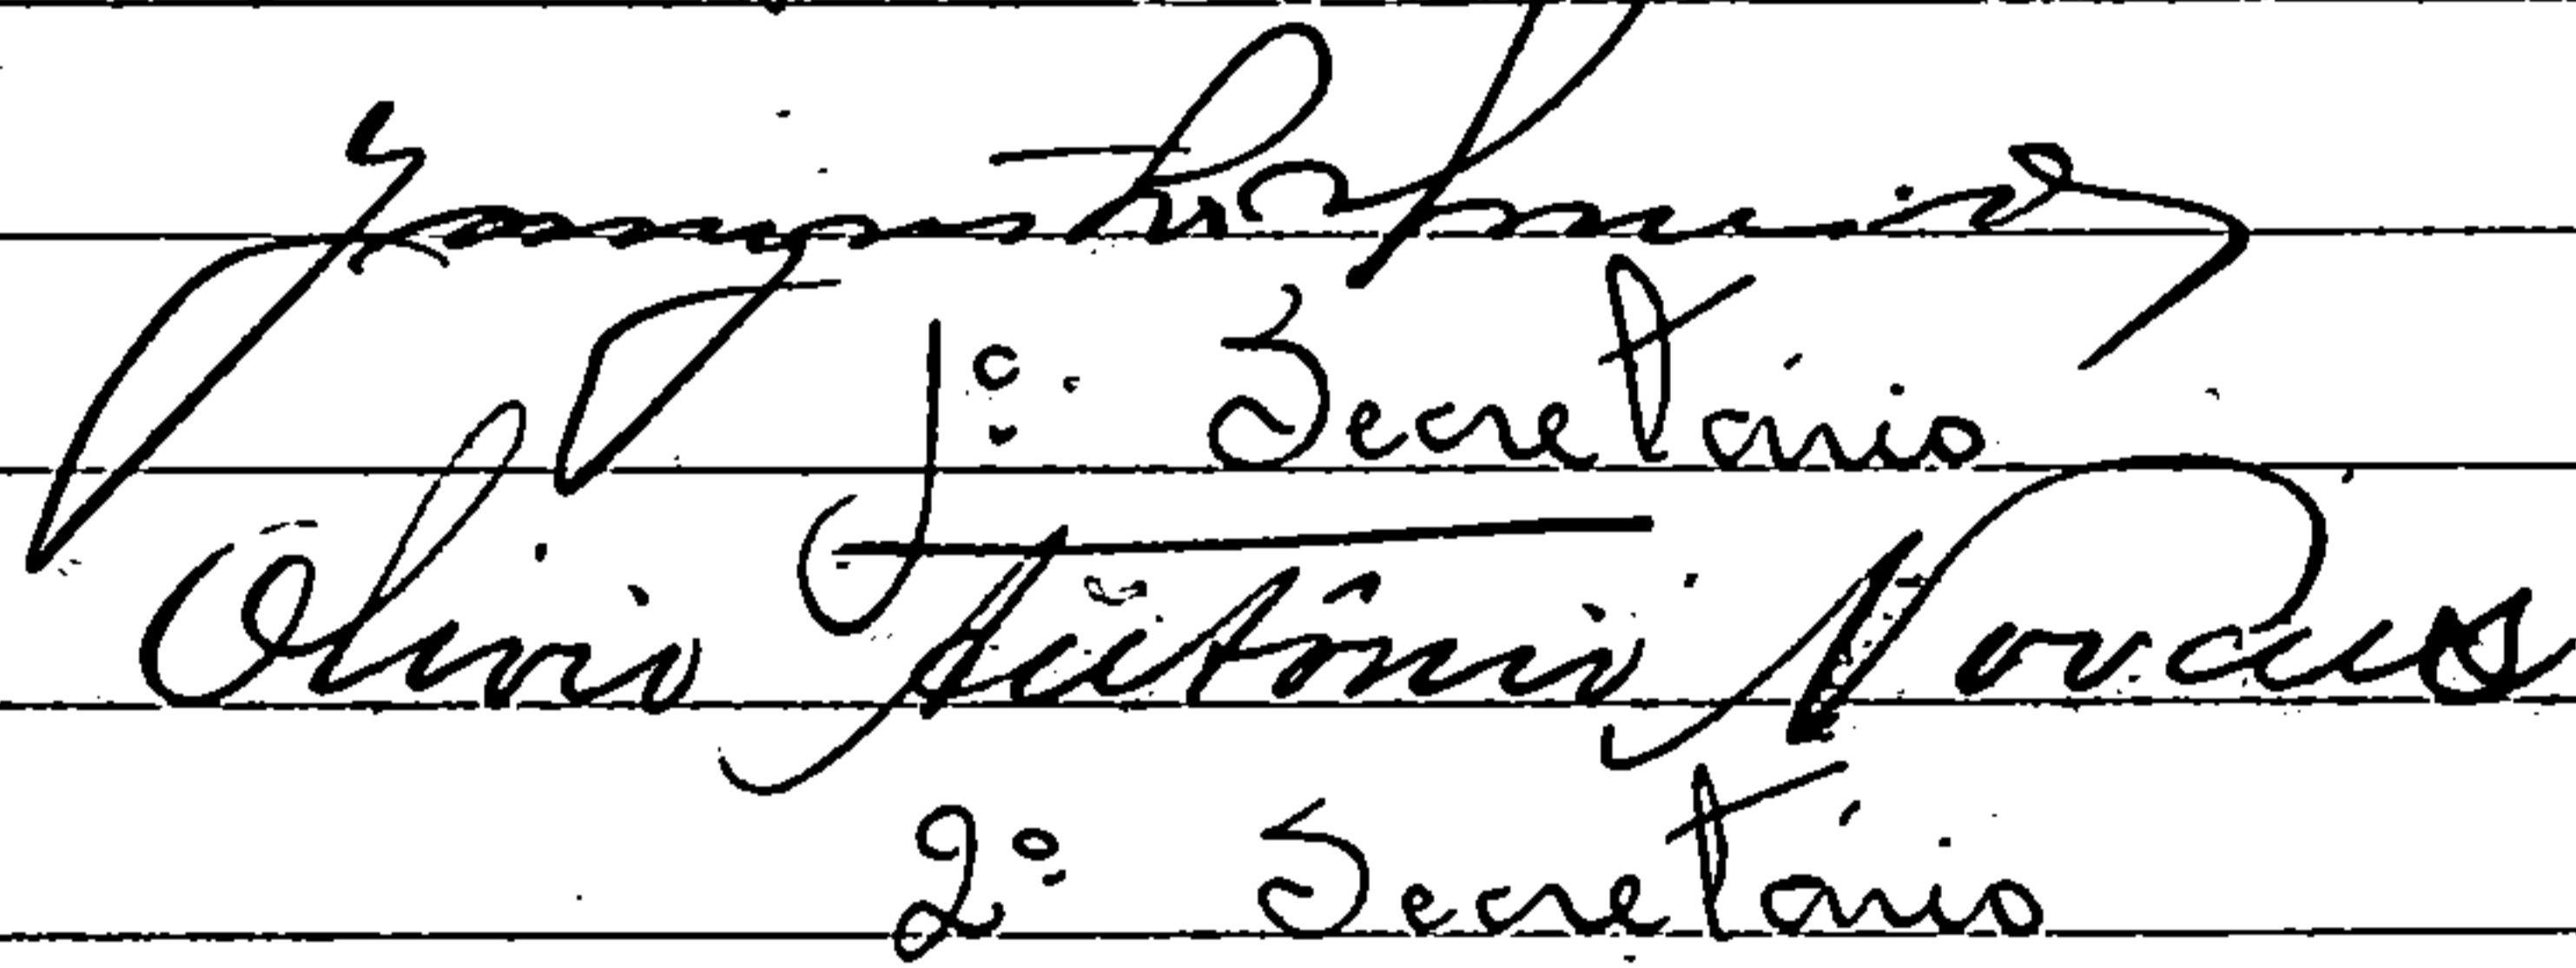 1º. Secretário
Olivio Antônio Novais
2º Secretário